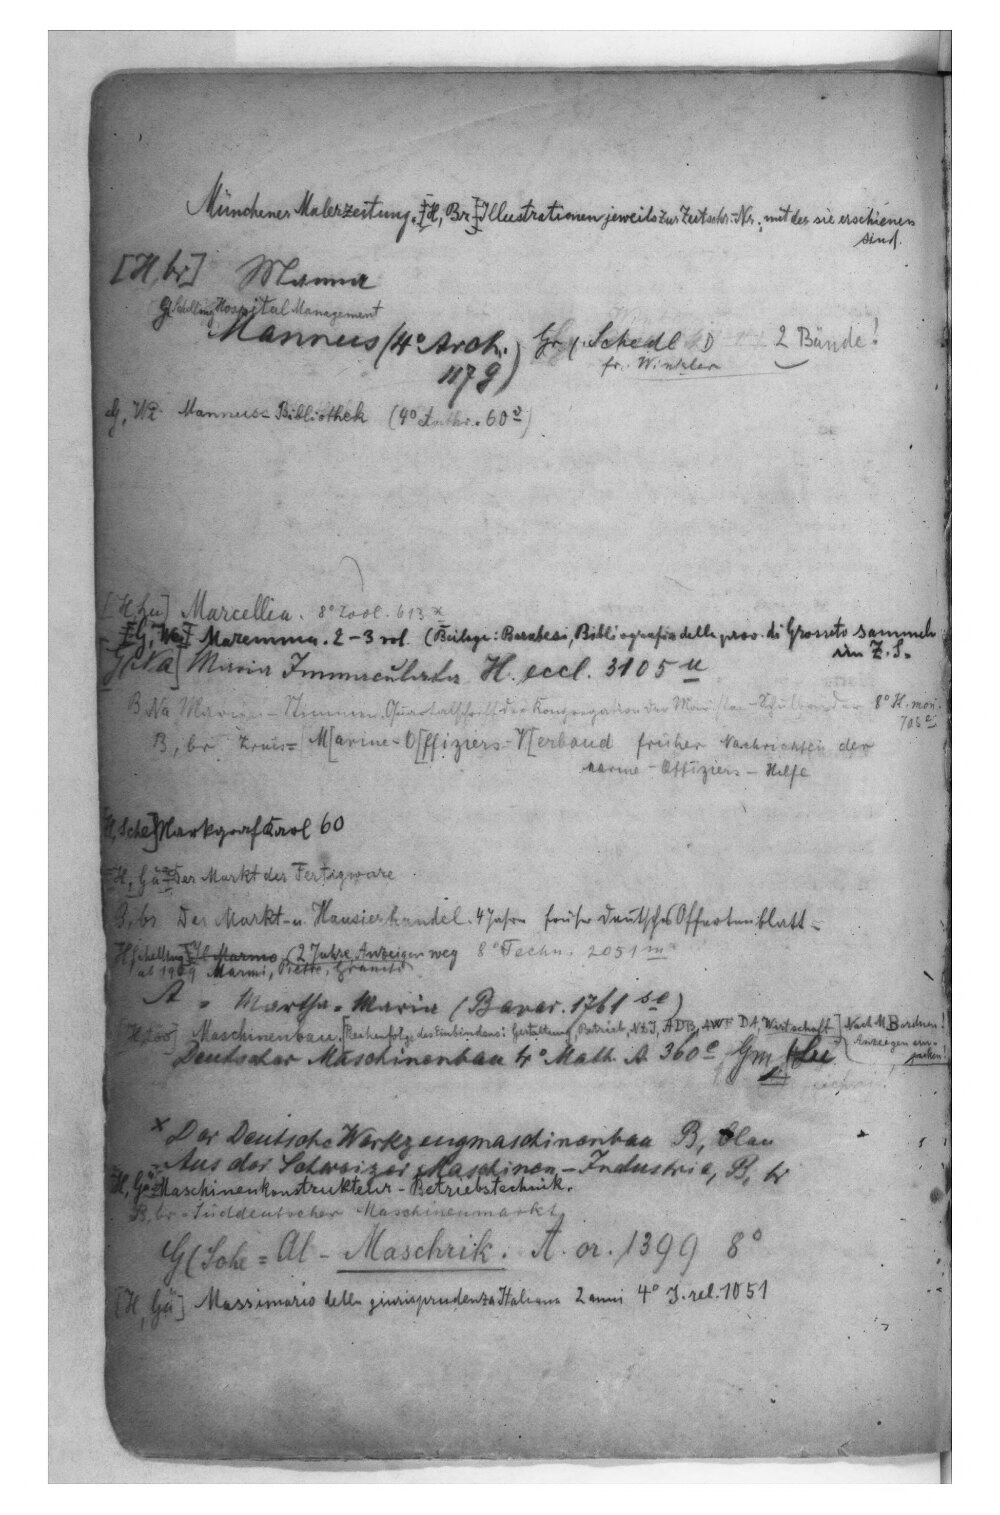 Münchener Malerzeitung. [H, Br] Illustrationen jeweils zur Zeitschr.-Nr., mit der sie erschienen
sind.
[H, br] Manna
G Schilling Hospital Management
Mannus (4° Arch. Gr ( Schedl D 2 Bände!
117 g) fr. Winkler
G, Wi Mannus-Bibliothek (4° Anthr. 60 v)
[H Lu] Marcellia. 8° Zool. 613 x
[G, We] Maremma. 2-3 vol. (Beilage: Barabesi, Bibliografia della prov. di Grosseto sammeln
im Z. S.
G(Na] Maria Immaculata H. eccl. 3105 u
B Na Marien-Stimmen. Quartalschrift der Kongregation der Maristen-Schulbrüder 8° H. mon.
708
B, br Kreis= M[arine-O[ffiziers-V[erband früher Nachrichten der
Marine-Offiziers-Hilfe
H, Sche] Markgraf Karl 60
[H, Gä] Der Markt der Fertigware
B, br Der Markt- u. Hausierhandel. 4 Jahre früher Deutsches Offertenblatt -
H Schilling [Il Marmo. (2 Jahre, Anzeigen weg 8° Techn. 2051 m
ab 1909 Marmi, Pietre, Graniti
A = Martha-Maria (Bavar. 1761 se)
Maschinenbau. [Reihenfolge des Einbindens: Gestaltung, Betrieb, NZJ, ADB, AWF DA, Wirtschaft] Nach M. Bordnen!
Anzeigen ein-
Deutscher Maschinenbau 4° Math. A 360 e Gm (Lu packen!
x Der Deutsche Werkzeugmaschinenbau B, blau
Aus der Schweizer Maschinen-Industrie, B, br
[H, Gä] Maschinenkonstrukteur-Betriebstechnik.
B, br - Süddeutscher Maschinenmarkt
G(Sche = Al-Maschrik. A. or. 1399 8°
[H, Gä] Massimario della giurisprudenza Italiana 2 anni 4° J. rel. 1051